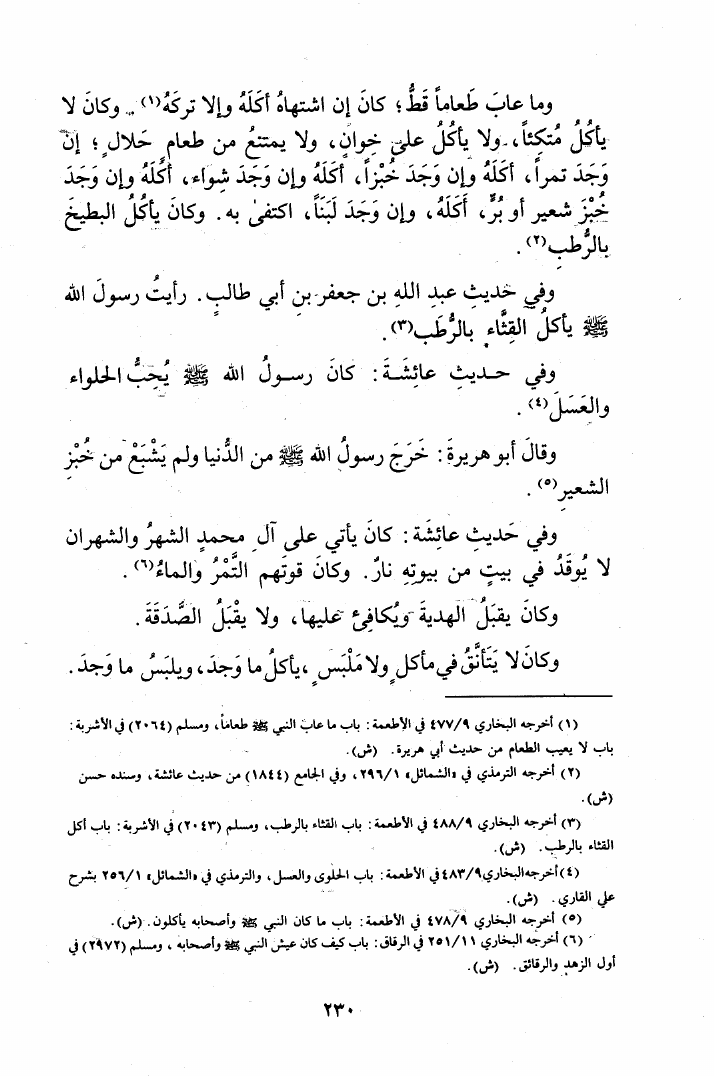 وما عابَ طَعاماً قَطُّ؛ كانَ إن اشتهاهُ أكَلَهُ وإلا تركَهُ(١) .. وكانَ لا
يأكُلُ مُتكِئاً، ولا يأكُلُ على خِوانٍ، ولا يمتنعُ من طعامٍ حَلالٍ؛ إنْ
وَجَدَ تمراً، أكَلَهُ وإن وَجَدَ خُبْزاً، أكَلَهُ وإن وَجَدَ شِواء، أكَلَهُ وإن وَجَدَ
خُبْزَ شعير أو بُرٍّ، أكَلَهُ، وإن وَجَدَ لَبَناً، اكتفىٰ به. وكانَ يأكُلُ البطيخَ
بالرُّطبِ(٢).
وفي حَديثِ عبدِ اللهِ بن جعفر بنِ أبي طالبٍ. رأيتُ رسولَ الله
ﷺ يأكُلُ القِثَّاء بالرُّطَبِ(٣).
وفي حديثِ عائِشَةَ: كانَ رسولُ الله ﷺ يُحِبُّ الحلواء
والعَسَلَ(٤).
وقالَ أبو هريرةَ: خَرَجَ رسولُ الله ﷺ من الدُّنيا ولم يَشْبَعْ من خُبْزِ
الشعيرِ(٥).
وفي حَديثِ عائِشَة: كانَ يأتي على آلِ محمدٍ الشهرُ والشهران
لا يُوقَدُ في بيتٍ من بيوتِهِ نارٌ. وكانَ قوتَهم التَّمْرُ والماءُ(٦).
وكانَ يقبَلُ الهديةَ ويُكافِئ عليها، ولا يقْبَلُ الصَّدَقَةَ.
وكانَ لا يَتَأنَّقُ في مأكلٍ ولا مَلْبَسٍ، يأكُلُ ما وَجدَ، ويلبَسُ ما وَجدَ.
(١) أخرجه البخاري ٤٧٧/٩ في الأطعمة: باب ما عاب النبي ﷺ طعاماً، ومسلم (٢٠٦٤) في الأشربة:
باب لا يعيب الطعام من حديث أبي هريرة. (ش).
(٢) أخرجه الترمذي في «الشمائل» ٢٩٦/١، وفي الجامع (١٨٤٤) من حديث عائشة، وسنده حسن
(ش).
(٣) أخرجه البخاري ٤٨٨/٩ في الأطعمة: باب القثاء بالرطب، ومسلم (٢٠٤٣) في الأشربة: باب أكل
القثاء بالرطب. (ش).
(٤) أخرجه البخاري ٤٨٣/٩ في الأطعمة: باب الحلوى والعسل، والترمذي في «الشمائل» ٢٥٦/١ بشرح
علي القاري. (ش).
(٥) أخرجه البخاري ٤٧٨/٩ في الأطعمة: باب ما كان النبي ﷺ وأصحابه يأكلون. (ش).
(٦) أخرجه البخاري ٢٥١/١١ في الرقاق: باب كيف كان عيش النبي ﷺ وأصحابه، ومسلم (٢٩٧٢) في
أول الزهد والرقائق. (ش).
٢٣٠